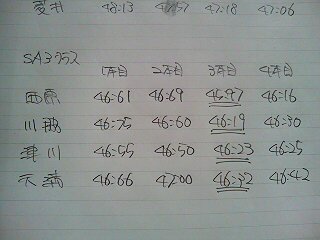 48:13 47:57 47:18 47:06
SA3352
1本目 2本目 3本目 4本目
西原 46:61 46:69 45:97 46:16
46:75 46:60 46:19 46:30
46:55 46:50 46:23 46:25
46:66 47:00 46:32 46:42